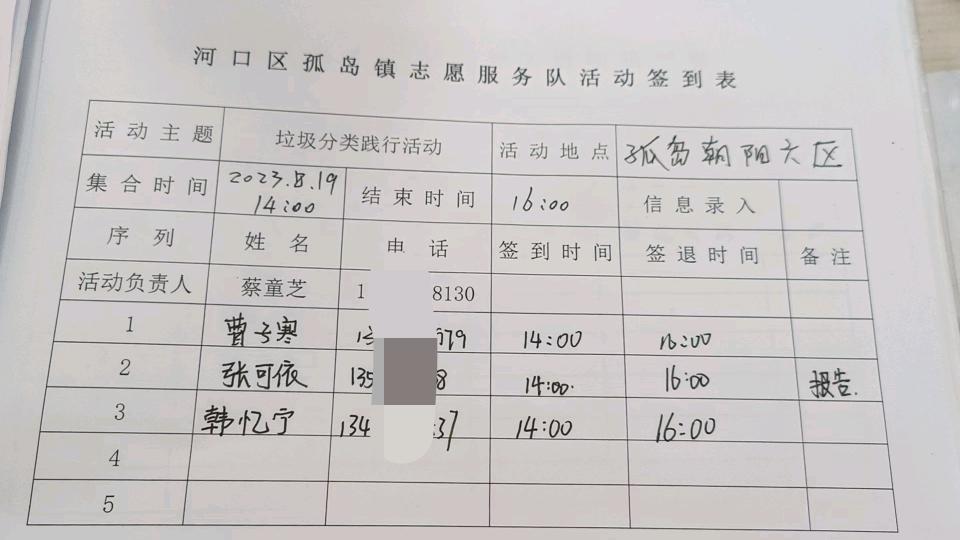 河口区孤岛镇志愿服务队活动签到表
活动主题 垃圾分类践行活动 活动地点 孤岛朝阳六区
集合时间 2023.8.19 14:00 结束时间 16:00 信息录入
序列 姓名 电话 签到时间 签退时间 备注
活动负责人 蔡童芝 1 8130
1 曹子寒 13 079 14:00 16:00
2 张可依 135 8 14:00 16:00 报告.
3 韩忆宁 134 37 14:00 16:00
4
5